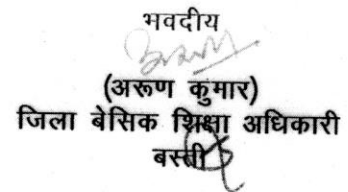 भवदीय
(अरूण कुमार)
जिला बेसिक शिक्षा अधिकारी
बस्ती